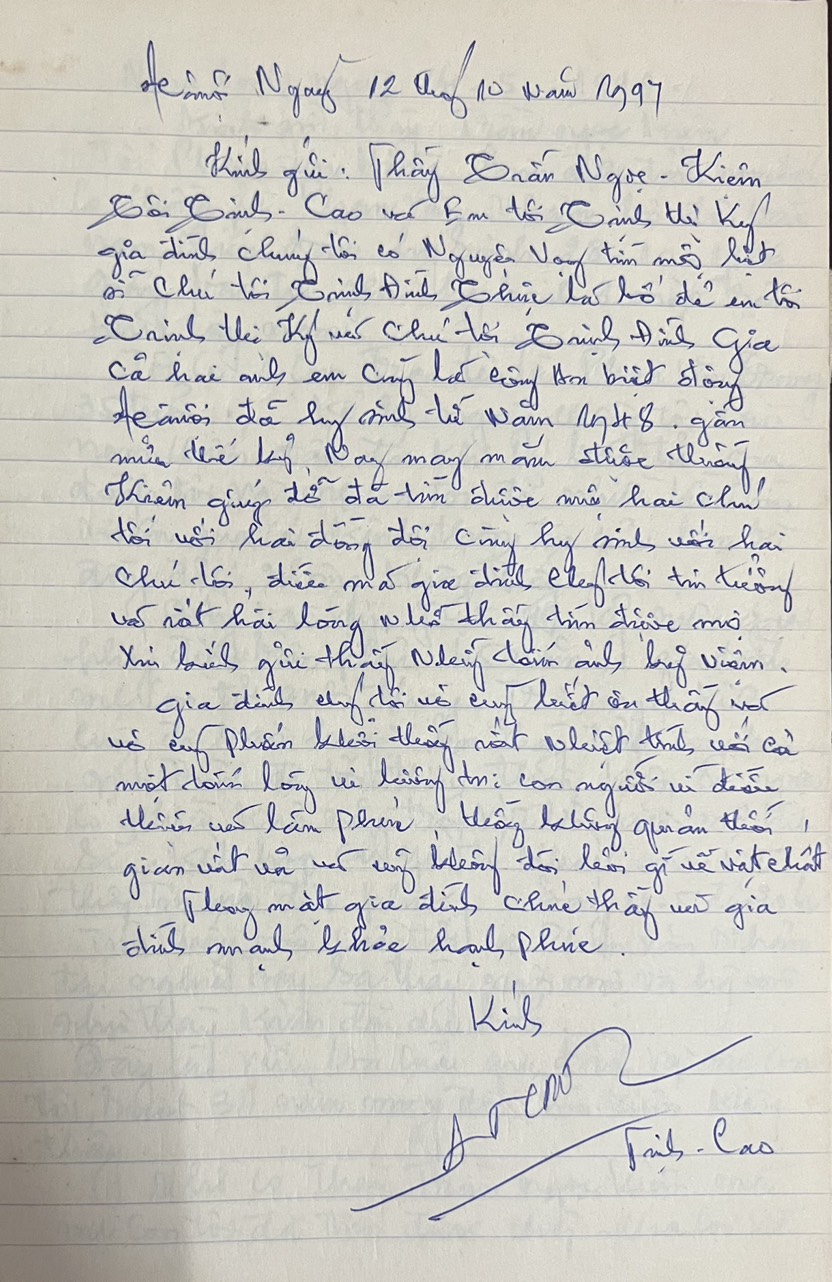 Hà Nội Ngày 12 tháng 10 năm 1997
Kính gửi: Thầy Trần Ngọc - Kiệm
Tôi Trịnh - Cao và Em tôi Trịnh thị Kỷ
gia đình chúng tôi có Nguyện Vọng tìm mộ liệt
sĩ Chú tôi Trịnh Đình Thực là bố đẻ em tôi
Trịnh thị Kỷ và Chú tôi Trịnh Đình Gia
Cả hai anh em Cùng là công An biệt động
Hà Nội đã hy sinh từ Năm 1948. gần
nửa thế kỷ, Nay may mắn được thầy
Kiệm giúp đỡ đã tìm được mộ hai chú
tôi với hai đồng đội cùng hy sinh với hai
chú tôi, điều mà gia đình chúng tôi tin tưởng
và rất hài lòng Nhờ thầy tìm được mộ
Xin kính gửi thầy Những tấm ảnh kỷ niệm.
Gia đình chúng tôi vô cùng biết ơn thầy và
vô cùng phấn khởi thấy thầy rất nhiệt tình với cả
một tấm lòng vì lương tri con người vì điều
thiện và làm phúc, thầy không quản thời
gian vất vả và cũng không đòi hỏi gì về vật chất
Thay mặt gia đình chúc thầy và gia
đình mạnh khỏe hạnh phúc.
Kính
Trịnh - Cao